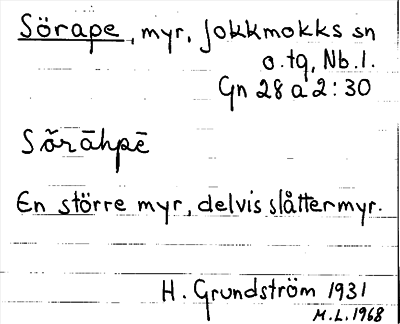 Sörape, myr, Jokkmokks sn
o. tg, Nb. l.
Gn 28 a 2:30
Sō̆rāhpē
En större myr, delvis slåttermyr.
H. Grundström 1931
M.L. 1968